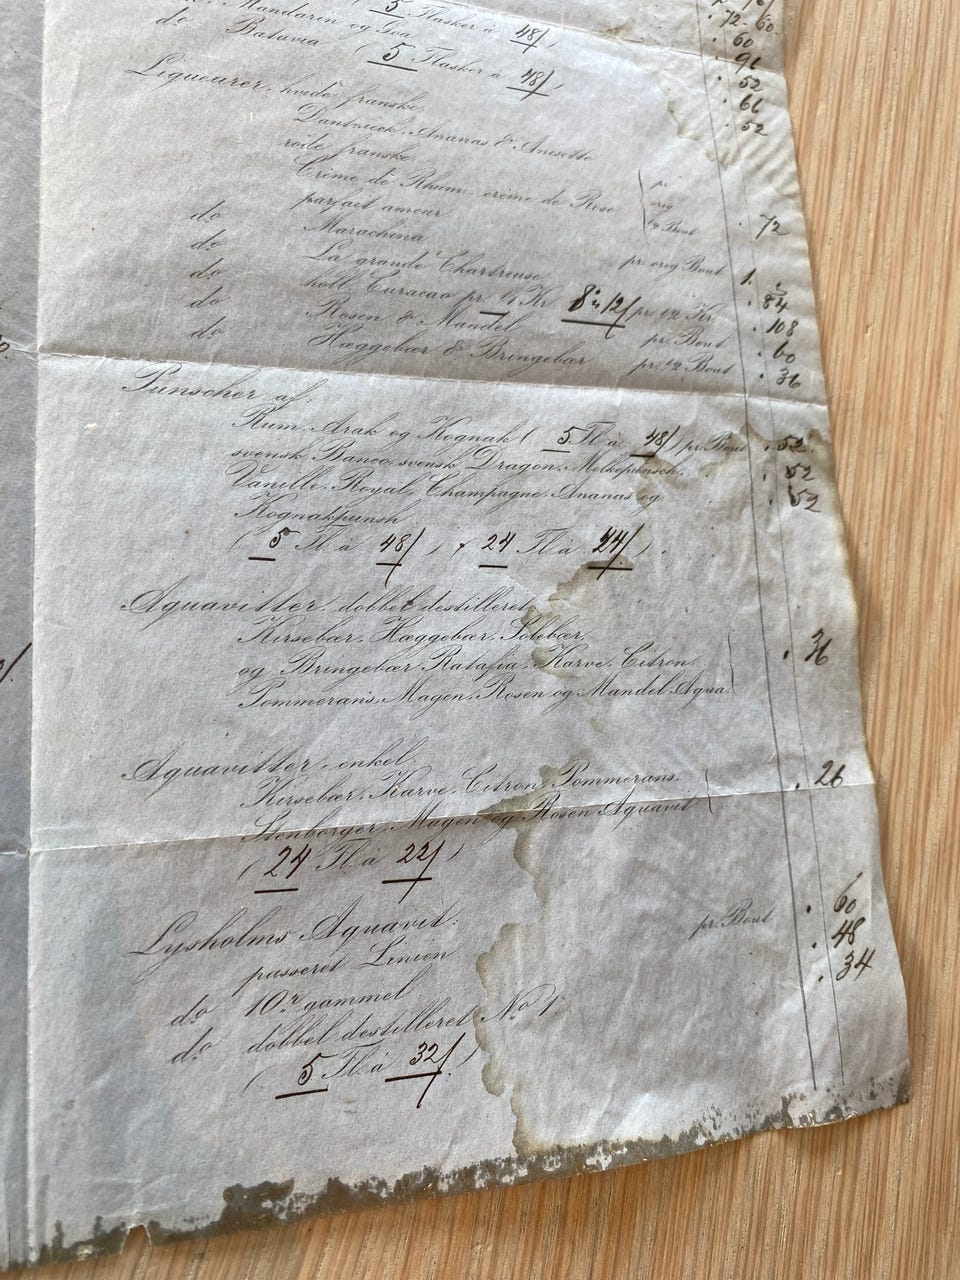 5 Flasker à 48/)
Mandarin og Goa . 72 - 60
. 60
do Batavia (5 Flasker à 48/) . 96
. 52
Liqueurer, hvide franske, . 66
Dantzieck, Ananas & Anisette . 52
røde franske,
Crême de Rhum, crême de Rose pr
parfait amour orig
do Marachina 1/2 Bout . 72
do La grande Chartreuse pr. orig Bout 1.
do holl. Curacao pr. 1/1 Kr 8 à 12/ pr. 1/2 Kr. . 84
do Rosen & Mandel pr. Bout . 108
do Hæggebær & Bringebær pr. 1/2 Bout . 60
. 36
Punscher af:
Rum, Arak og Kognak (5 Fl. à 48/) pr Bout . 52
svensk Banco, svensk Dragon, Melkepunsch, . 52
Vanille, Royal, Champagne, Ananas og . 52
Kognakpunsh
(5 Fl. à 48/) + 24 Fl. à 44/).
Aquavitter, dobbel destilleret,
Kirsebær, Hæggebær, Solebær,
og Bringebær Ratafia, Karve, Citron, . 36
Pommerans, Magen, Rosen og Mandel Aqua.
Aquavitter enkel:
Kirsebær, Karve, Citron, Pommerans, . 26
Stenborger, Magen og Rosen Aquavit
(24 Fl. à 22/)
Lysholms Aquavit:
passeret Linien pr. Bout . 60
do 10r gammel . 48
do dobbel destilleret No 1 . 34
(5 Fl. à 32/)